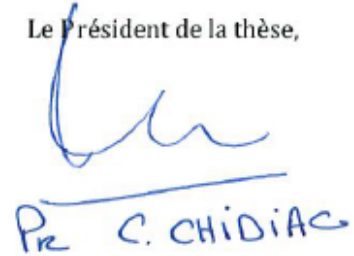 Le Président de la thèse,
Pr C. CHiDiAC